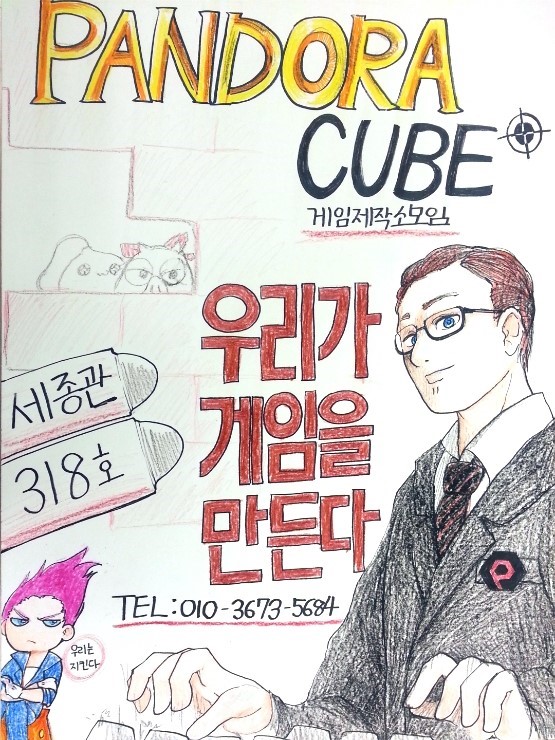 PANDORA
CUBE
게임제작소모임
우리가
게임을
만든다
세종관
318호
TEL:010-3673-5684
우리는
지킨다
P